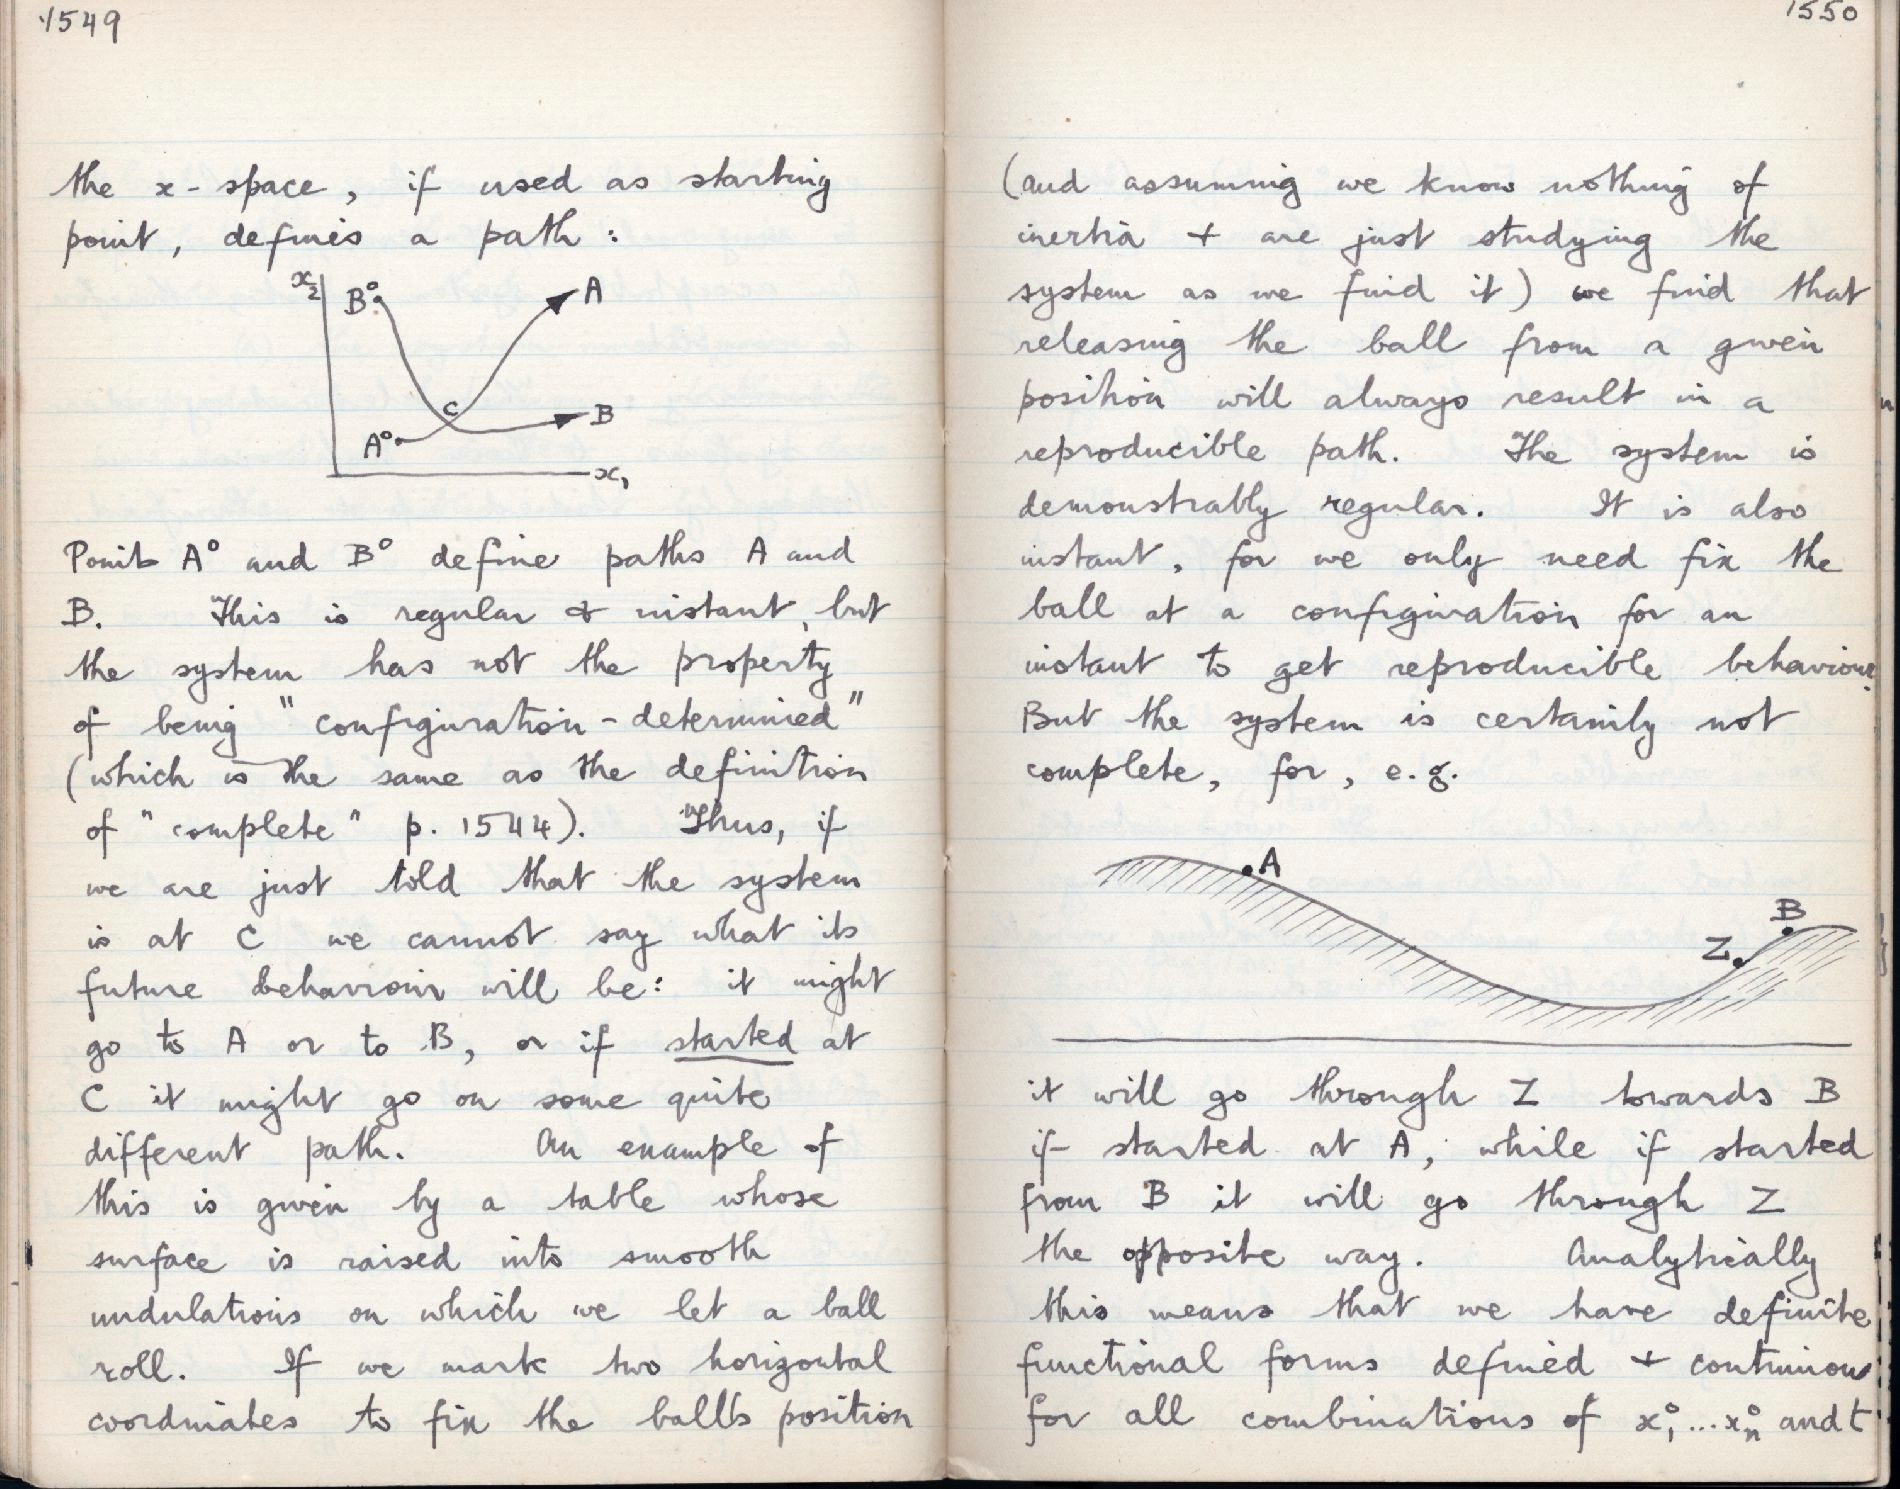 1549
the x-space, if used as starting
point, defines a path:
x2
B°
A
C
B
A°
x1
Points A° and B° define paths A and
B. This is regular & instant, but
the system has not the property
of being "configuration-determined"
(which is the same as the definition
of "complete" p. 1544). Thus, if
we are just told that the system
is at C we cannot say what its
future behaviour will be: it might
go to A or to B, or if started at
C it might go on some quite
different path. An example of
this is given by a table whose
surface is raised into smooth
undulations on which we let a ball
roll. If we mark two horizontal
coordinates to fix the ball's position
1550
(and assuming we know nothing of
inertia + are just studying the
system as we find it) we find that
releasing the ball from a given
position will always result in a
reproducible path. The system is
demonstrably regular. It is also
instant, for we only need fix the
ball at a configuration for an
instant to get reproducible behaviour.
But the system is certainly not
complete, for, e.g.
A
B
Z
it will go through Z towards B
if started at A, while if started
from B it will go through Z
the opposite way. Analytically
this means that we have definite
functional forms defined + continuous
for all combinations of x°1, ... x°n and t